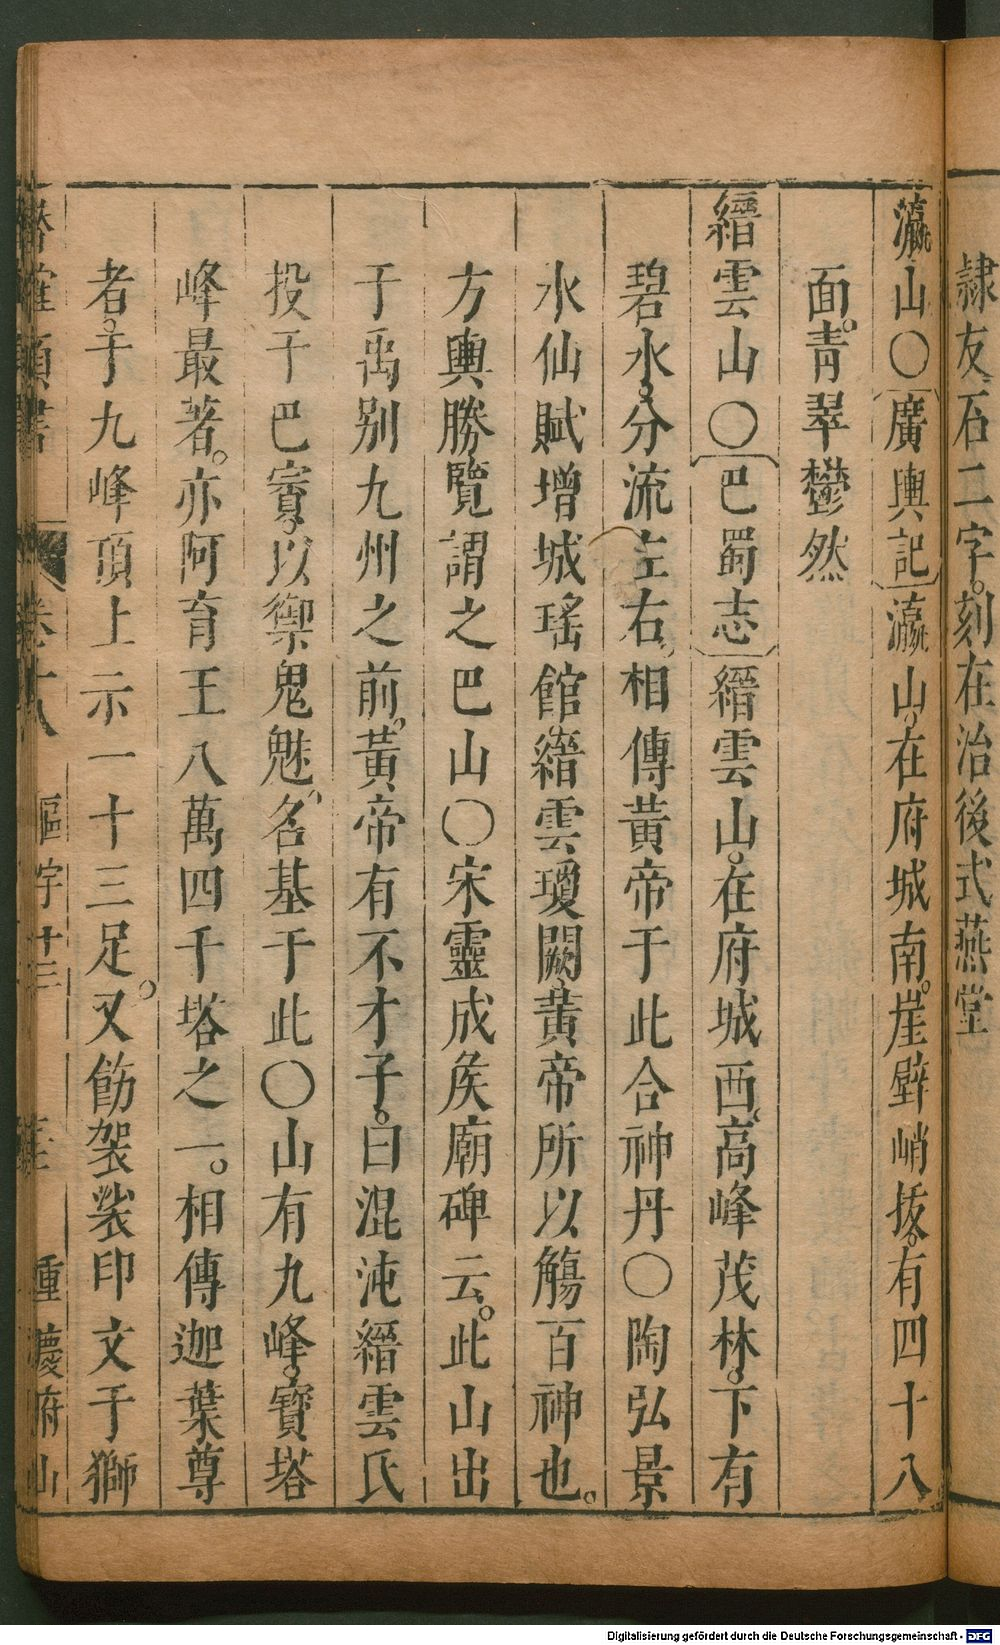 隷友石二字。刻在治後式燕堂
瀛山〇〔廣輿記〕瀛山。在府城南。崖壁峭拔。有四十八
面。青翠鬱然
縉雲山〇〔巴蜀志〕縉雲山。在府城西。高峰茂林。下有
碧水。分流左右。相傳黃帝于此合神丹〇陶弘景
水仙賦增城瑤館縉雲瓊闕。黃帝所以觴百神也。
方輿勝覽謂之巴山〇宋靈成矦廟碑云。此山出
于禹別九州之前。黃帝有不才子。曰混沌縉雲氏
投于巴賨。以禦鬼魅。名基于此〇山有九峰。寶塔
峰最著。亦阿育王八萬四千塔之一。相傳迦葉尊
者。于九峰頂上示一十三足。又飭袈裟印文于獅
卷十八
區字十三
重慶府山
Digitalisierung gefördert durch die Deutsche Forschungsgemeinschaft - DFG